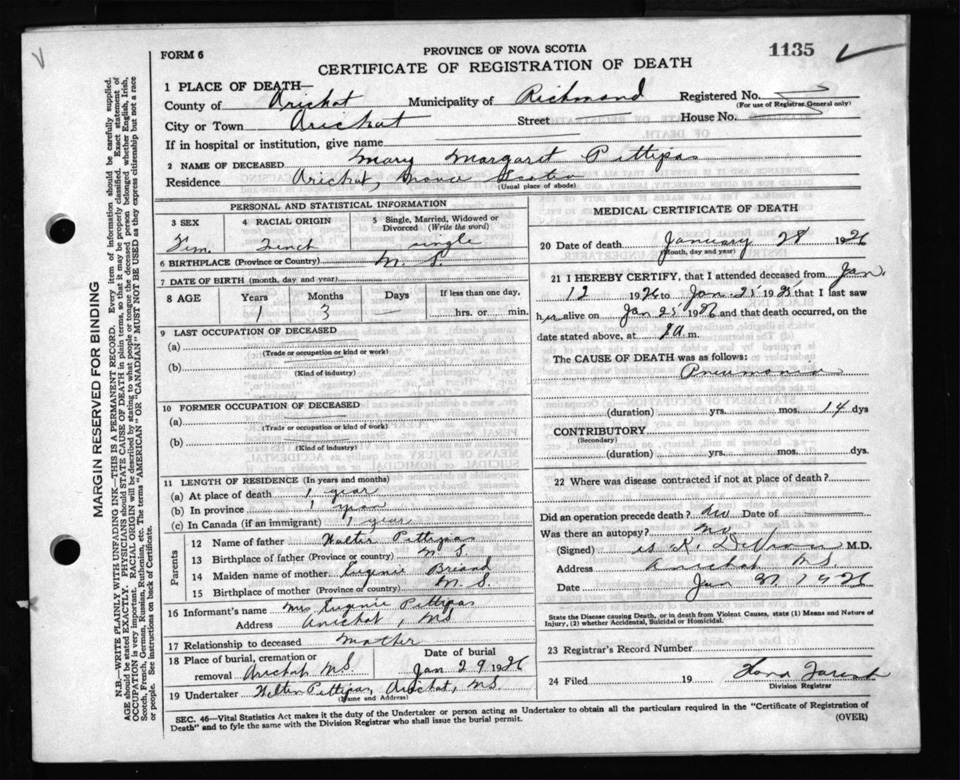 FORM 6
PROVINCE OF NOVA SCOTIA
1135
CERTIFICATE OF REGISTRATION OF DEATH
1 PLACE OF DEATH—
County of Arichat Municipality of Richmond Registered No.
(For use of Registrar General only)
City or Town Arichat Street House No.
If in hospital or institution, give name
2 NAME OF DECEASED Mary Margaret Pettipas
Residence Arichat, Nova Scotia
(Usual place of abode)
PERSONAL AND STATISTICAL INFORMATION
3 SEX 4 RACIAL ORIGIN 5 Single, Married, Widowed or Divorced (Write the word)
Fem. French single
6 BIRTHPLACE (Province or Country) N. S.
7 DATE OF BIRTH (month, day, and year)
8 AGE Years Months Days If less than one day,
1 3 — hrs. or min.
9 LAST OCCUPATION OF DECEASED
(a)
(Trade or occupation or kind or work)
(b)
(Kind of industry)
10 FORMER OCCUPATION OF DECEASED
(a)
(Trade or occupation or kind of work)
(b)
(Kind of industry)
11 LENGTH OF RESIDENCE (In years and months)
(a) At place of death 1 year
(b) In province 1 year
(c) In Canada (if an immigrant) 1 year
Parents
12 Name of father Walter Pettipas
13 Birthplace of father (Province or country) N S.
14 Maiden name of mother Eugenie Briand
15 Birthplace of mother (Province or country) N S.
16 Informant's name Mrs Eugenie Pettipas
Address Arichat, NS
17 Relationship to deceased Mother
18 Place of burial, cremation or removal Arichat N.S. Date of burial Jan 29 1926
19 Undertaker Walter Pettipas, Arichat, N.S.
(Name and Address)
MEDICAL CERTIFICATE OF DEATH
20 Date of death January 28 1926
(Month, day and year)
21 I HEREBY CERTIFY, that I attended deceased from Jan.
12 1926 to Jan. 25 1925, that I last saw
her alive on Jan 25 1926 and that death occurred, on the
date stated above, at a m.
The CAUSE OF DEATH was as follows:
Pneumonia
(duration) yrs. mos. 14 dys
CONTRIBUTORY
(Secondary)
(duration) yrs. mos. dys.
22 Where was disease contracted if not at place of death?
Did an operation precede death? no Date of
Was there an autopsy? No
(Signed) M.D.
Address Arichat NS
Date Jan 1926
State the Disease causing Death, or in death from Violent Causes, state (1) Means and Nature of
Injury, (2) whether Accidental, Suicidal or Homicidal.
23 Registrar's Record Number
24 Filed 19
Division Registrar
SEC. 46—Vital Statistics Act makes it the duty of the Undertaker or person acting as Undertaker to obtain all the particulars required in the "Certificate of Registration of
Death" and to fyle the same with the Division Registrar who shall issue the burial permit.
(OVER)
MARGIN RESERVED FOR BINDING
N.B.—WRITE PLAINLY WITH UNFADING INK—THIS IS A PERMANENT RECORD. Every item of information should be carefully supplied.
AGE should be stated EXACTLY. PHYSICIANS should STATE CAUSE OF DEATH in plain terms, so that it may be properly classified. Exact statement of
OCCUPATION is very important. RACIAL ORIGIN will be described by stating to what people or tongue the deceased person belonged whether English, Irish,
Scotch, French, German, Russian, Ruthenian, etc. The terms "AMERICAN" OR "CANADIAN" MUST NOT BE USED as they express citizenship but not a race
or people. See instructions on back of Certificate.